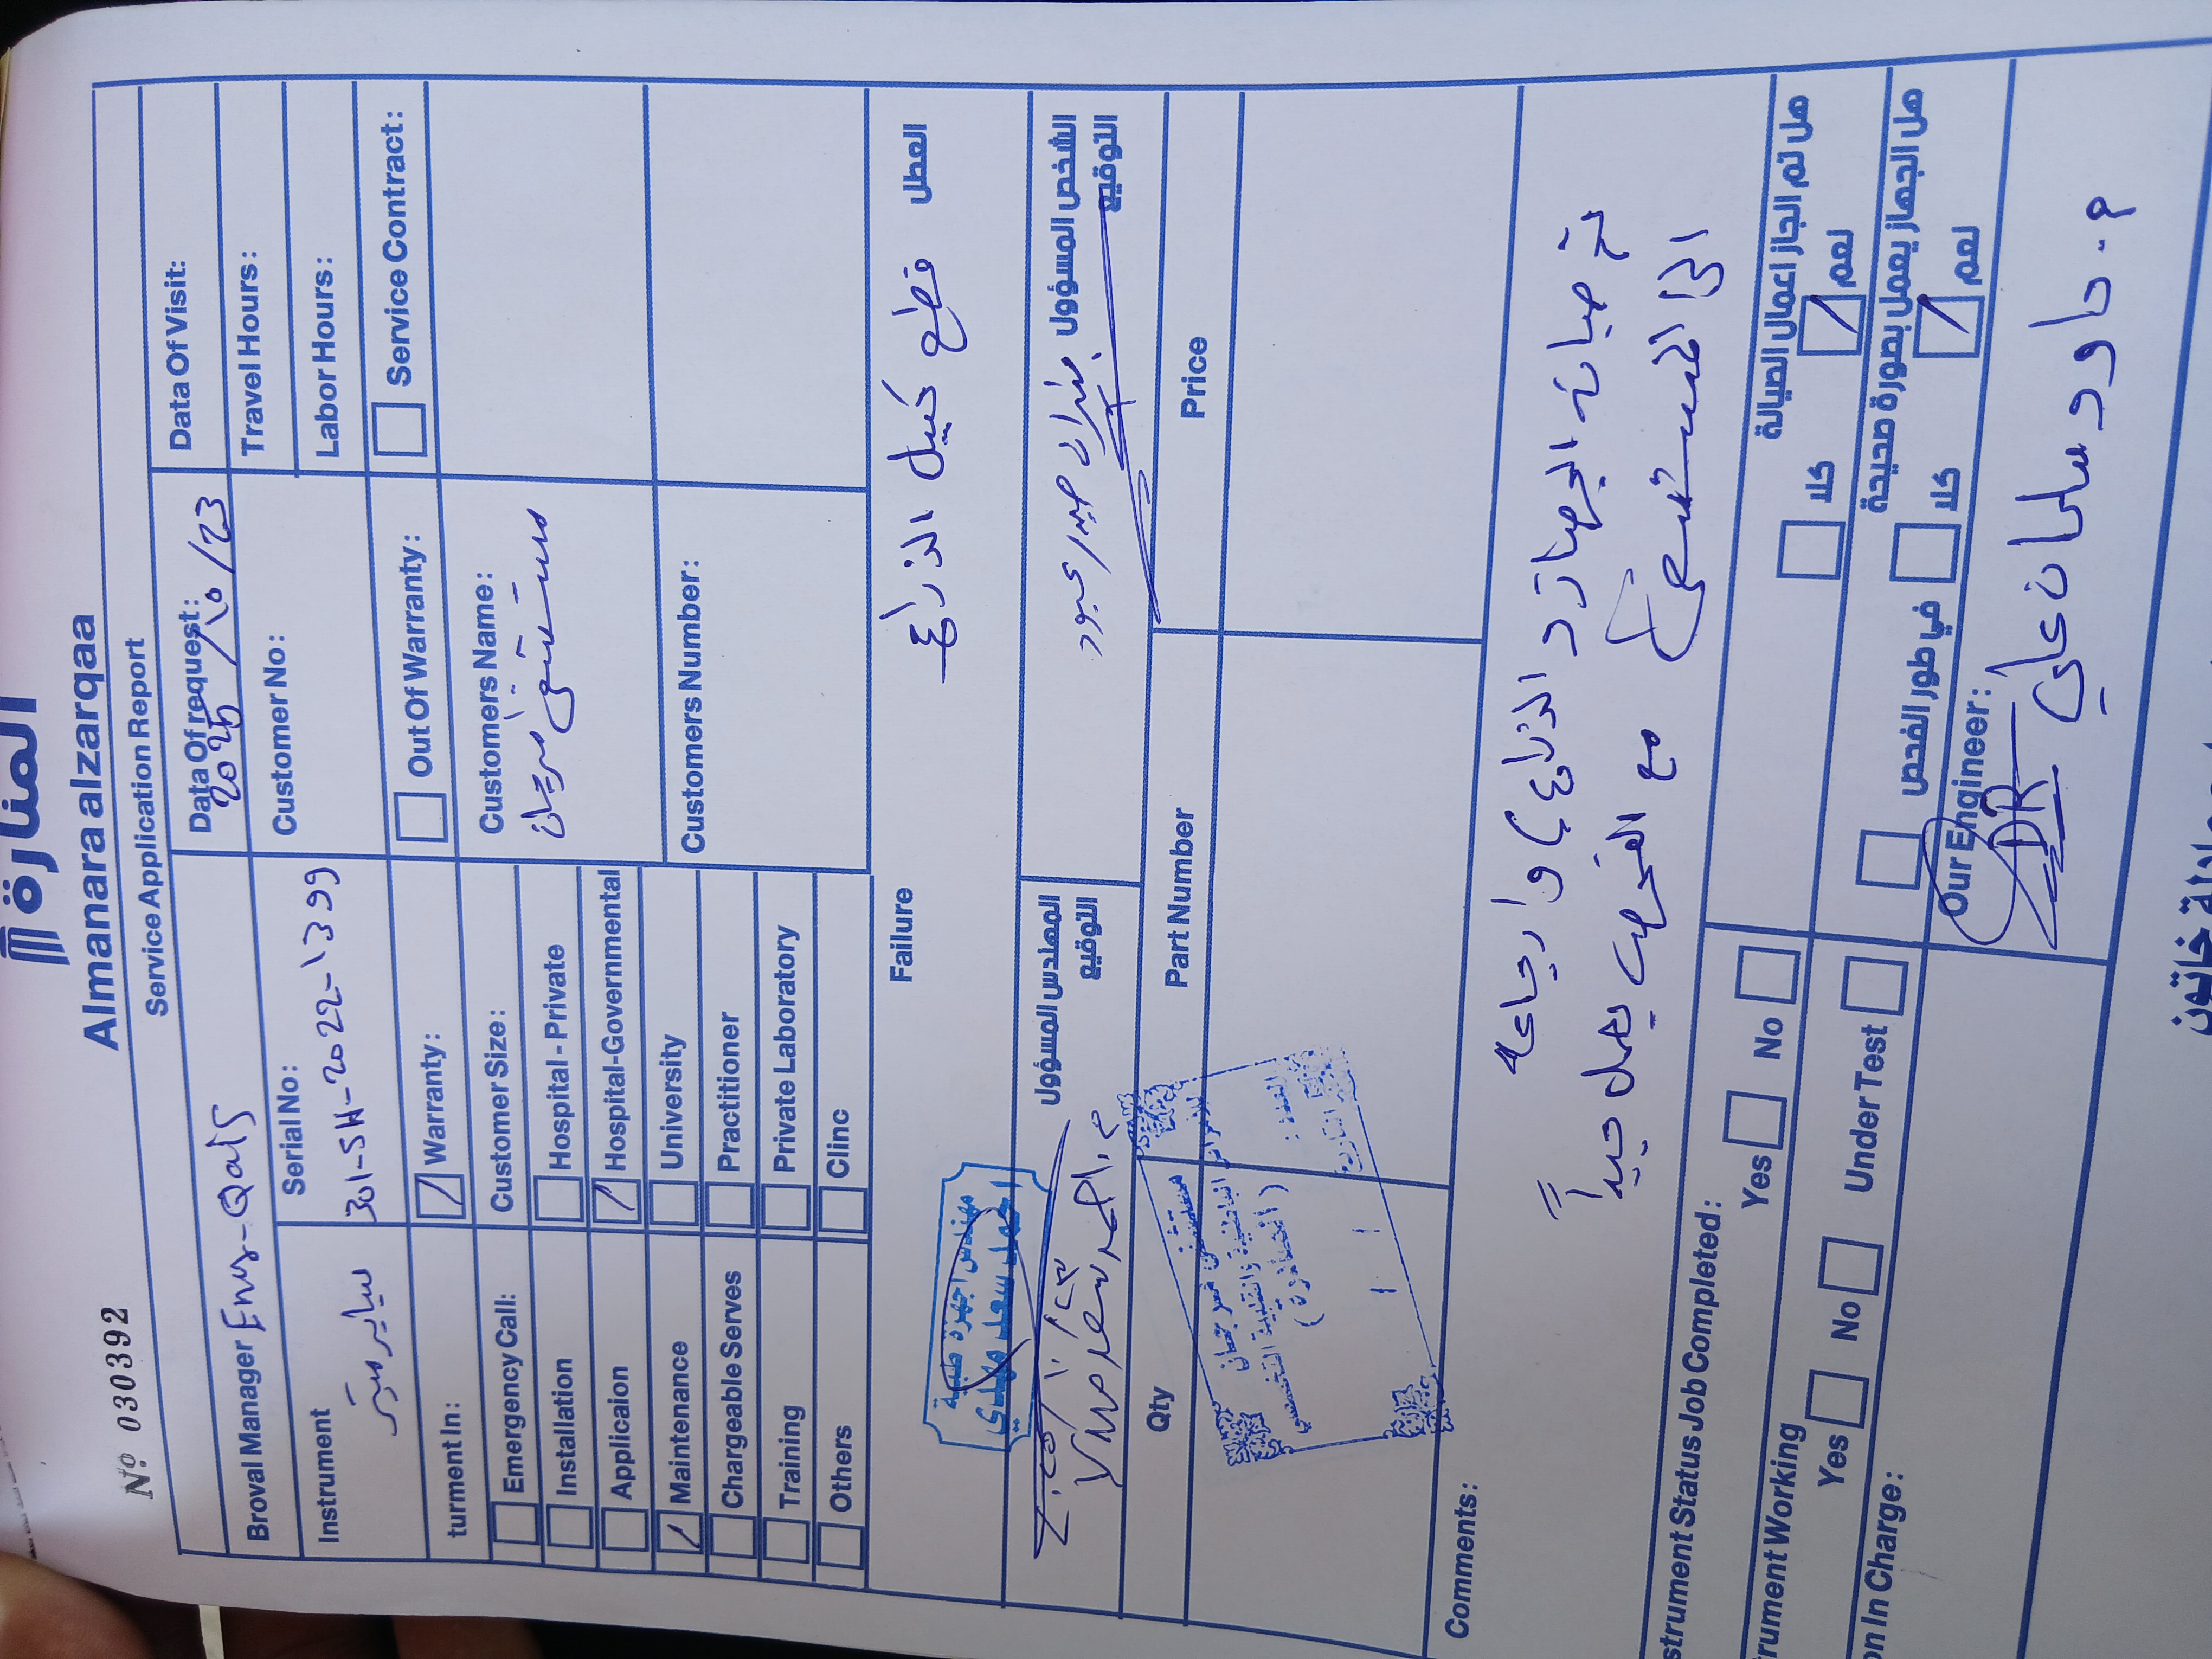 المنارة
Almanara alzarqaa
Service Application Report
Nº 030392
Data Of request:
2025/10/23
Data Of Visit:
Broval Manager Eng-Qais
Travel Hours:
Instrument
Serial No:
301-SH-2022-1399
Customer No:
Labor Hours:
turment In:
Warranty:
Out Of Warranty:
Service Contract:
Emergency Call:
Customer Size:
Customers Name:
Installation
Hospital - Private
Applicaion
Hospital-Governmental
Maintenance
University
Customers Number:
Chargeable Serves
Practitioner
Training
Private Laboratory
Others
Clinc
Failure
العطل
قطع كيبل الذراع
مهندس اجهزة طبية
احمد سعد مهدي
المهندس المسؤول
التوقيع
الشخص المسؤول
التوقيع
م. احمد سعد مهدي
Qty
Part Number
Price
مستشفى مرجان
Comments:
تم صيانة الجهاز د الذراع) وارجاعه
الى المستشفى مع الفحص يعمل جيداً
strument Status Job Completed:
Yes
No
هل تم انجاز اعمال الصيانة
كلا
نعم
trument Working
Yes
No
Under Test
هل الجهاز يعمل بصورة صحيحة
في طور الفحص
كلا
نعم
on In Charge:
Our Engineer:
م. داود سلمان علي
خاتون